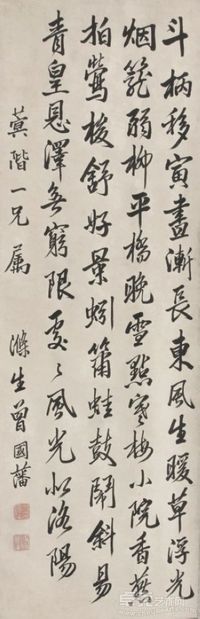 斗柄移寅晝漸長東風生暖草浮光
烟籠弱柳平橋晚雪點寒梅小院香燕
拍鶯梭舒好景蚓簫蛙鼓鬧斜昜
青皇恩澤無窮限處々風光似洛陽
蓂階一兄屬
滌生曾國藩